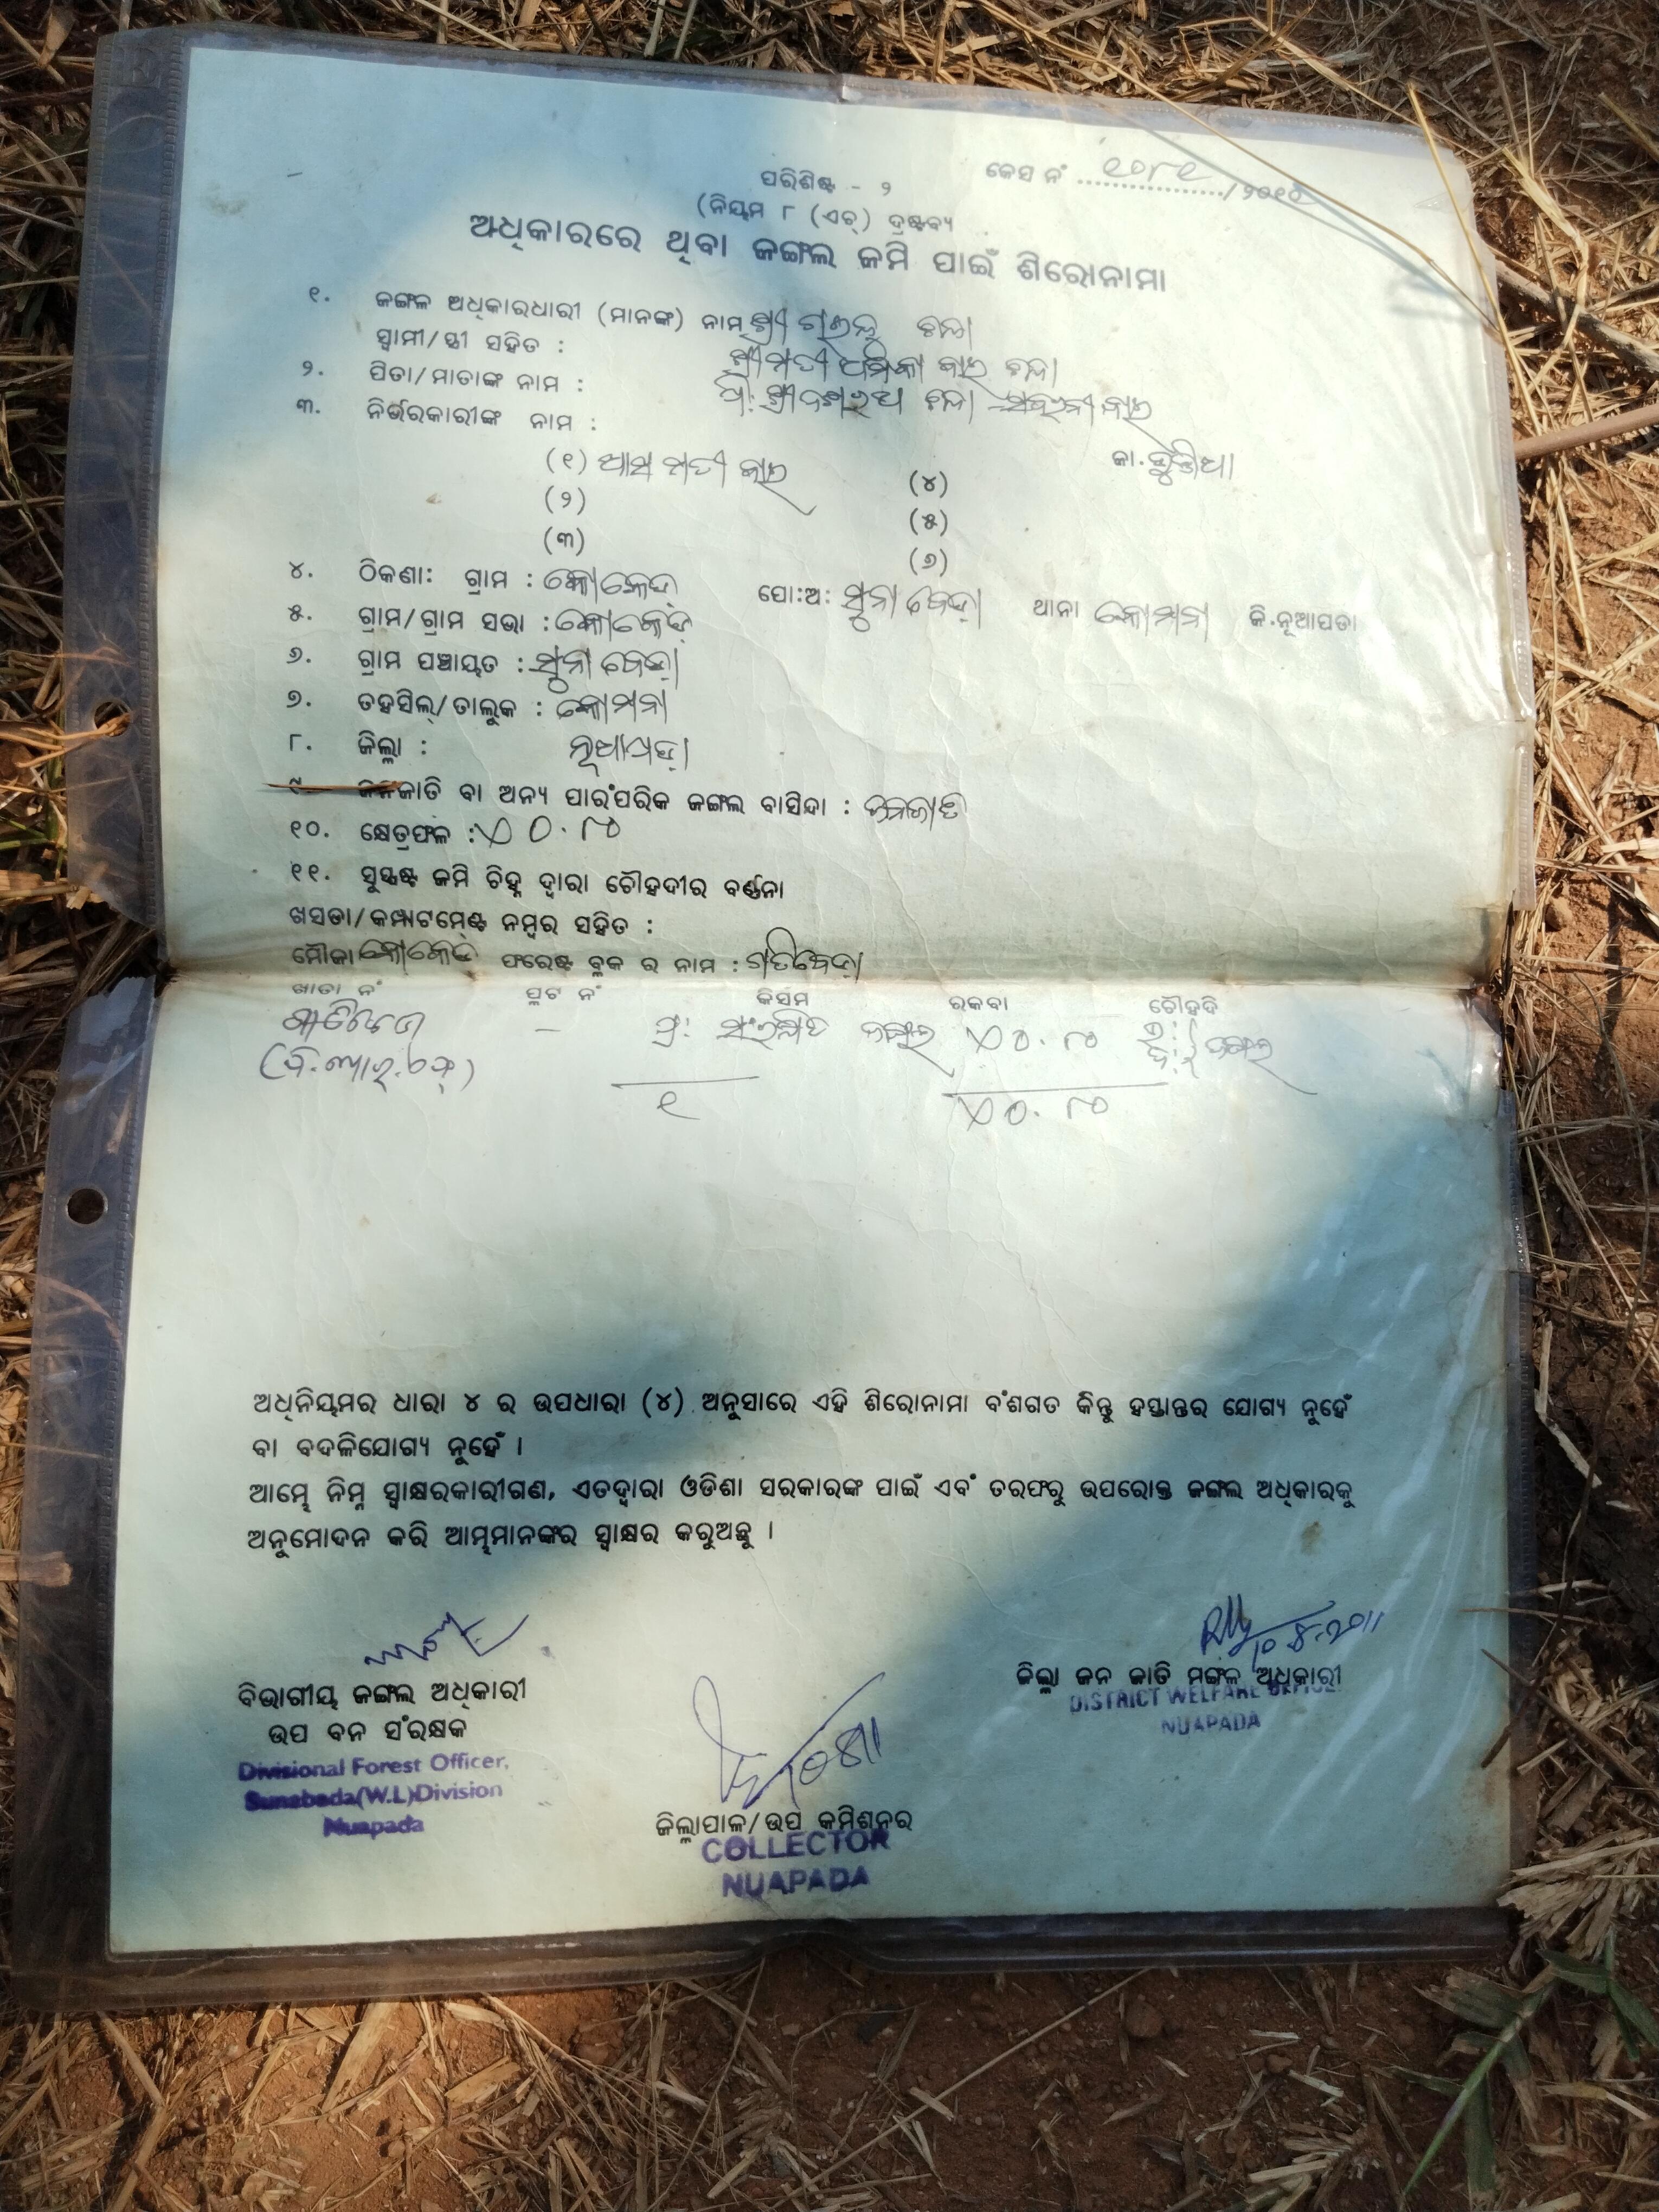 କେସ ନଂ ୧୦୮୧/୨୦୧୦
ପରିଶିଷ୍ଟ - ୨
(ନିୟମ ୮ (ଏଚ୍) ଦ୍ରଷ୍ଟବ୍ୟ
ଅଧିକାରରେ ଥିବା ଜଙ୍ଗଲ ଜମି ପାଇଁ ଶିରୋନାମା
୧. ଜଙ୍ଗଳ ଅଧିକାରଧାରୀ (ମାନଙ୍କ) ନାମ ଶ୍ରୀ
ସ୍ଵାମୀ/ସ୍ତ୍ରୀ ସହିତ : ଶ୍ରୀମତୀ ବାଇ
୨. ପିତା/ମାତାଙ୍କ ନାମ : ପି: ଶ୍ରୀ ବାଇ
୩. ନିର୍ଭରକାରୀଙ୍କ ନାମ :
ଜା. ଭୁଞ୍ଜିଆ
(୧) ଆସମତୀ ବାଇ (୪)
(୨) (୫)
(୩) (୬)
୪. ଠିକଣା: ଗ୍ରାମ : ପୋ:ଅ: ସୁନାବେଡ଼ା ଥାନା କୋମନା ଜି.ନୂଆପଡା
୫. ଗ୍ରାମ/ଗ୍ରାମ ସଭା :
୬. ଗ୍ରାମ ପଞ୍ଚାୟତ : ସୁନାବେଡ଼ା
୭. ତହସିଲ୍/ତାଲୁକ : କୋମନା
୮. ଜିଲ୍ଲା : ନୂଆପଡ଼ା
୯. ଜନଜାତି ବା ଅନ୍ୟ ପାରଂପରିକ ଜଙ୍ଗଲ ବାସିନ୍ଦା : ଜନଜାତି
୧୦. କ୍ଷେତ୍ରଫଳ : ୦.୮୦
୧୧. ସୁସ୍ପଷ୍ଟ ଜମି ଚିହ୍ନ ଦ୍ଵାରା ଚୌହଦୀର ବର୍ଣ୍ଣନା
ଖସଡା/କମ୍ପାଟମେଣ୍ଟ ନମ୍ବର ସହିତ :
ମୌଜା ଫରେଷ୍ଟ ବ୍ଲକ ର ନାମ : ଗତିବେଡ଼ା
ଖାତା ନଂ ପ୍ଲଟ ନଂ କିସମ ରକବା ଚୌହଦି
— ସଂରକ୍ଷିତ ଜଙ୍ଗଲ ୦.୮୦ ଜଙ୍ଗଲ
(ଡି.ଆର୍.ଏଫ୍)
୧ ୦.୮୦
ଅଧିନିୟମର ଧାରା ୪ ର ଉପଧାରା (୪) ଅନୁସାରେ ଏହି ଶିରୋନାମା ବଂଶଗତ କିନ୍ତୁ ହସ୍ତାନ୍ତର ଯୋଗ୍ୟ ନୁହେଁ
ବା ବଦଳିଯୋଗ୍ୟ ନୁହେଁ ।
ଆମ୍ଭେ ନିମ୍ନ ସ୍ଵାକ୍ଷରକାରୀଗଣ, ଏତଦ୍ଵାରା ଓଡିଶା ସରକାରଙ୍କ ପାଇଁ ଏବଂ ତରଫରୁ ଉପରୋକ୍ତ ଜଙ୍ଗଲ ଅଧିକାରକୁ
ଅନୁମୋଦନ କରି ଆମ୍ଭମାନଙ୍କର ସ୍ଵାକ୍ଷର କରୁଅଛୁ ।
10.8.2011
ଜିଲ୍ଲା ଜନ ଜାତି ମଙ୍ଗଳ ଅଧିକାରୀ
DISTRICT WELFARE OFFICE
NUAPADA
ବିଭାଗୀୟ ଜଙ୍ଗଲ ଅଧିକାରୀ
ଉପ ବନ ସଂରକ୍ଷକ
Divisional Forest Officer,
Sunabeda(W.L)Division
Nuapada
ଜିଲ୍ଲାପାଳ/ଉପ କମିଶନର
COLLECTOR
NUAPADA